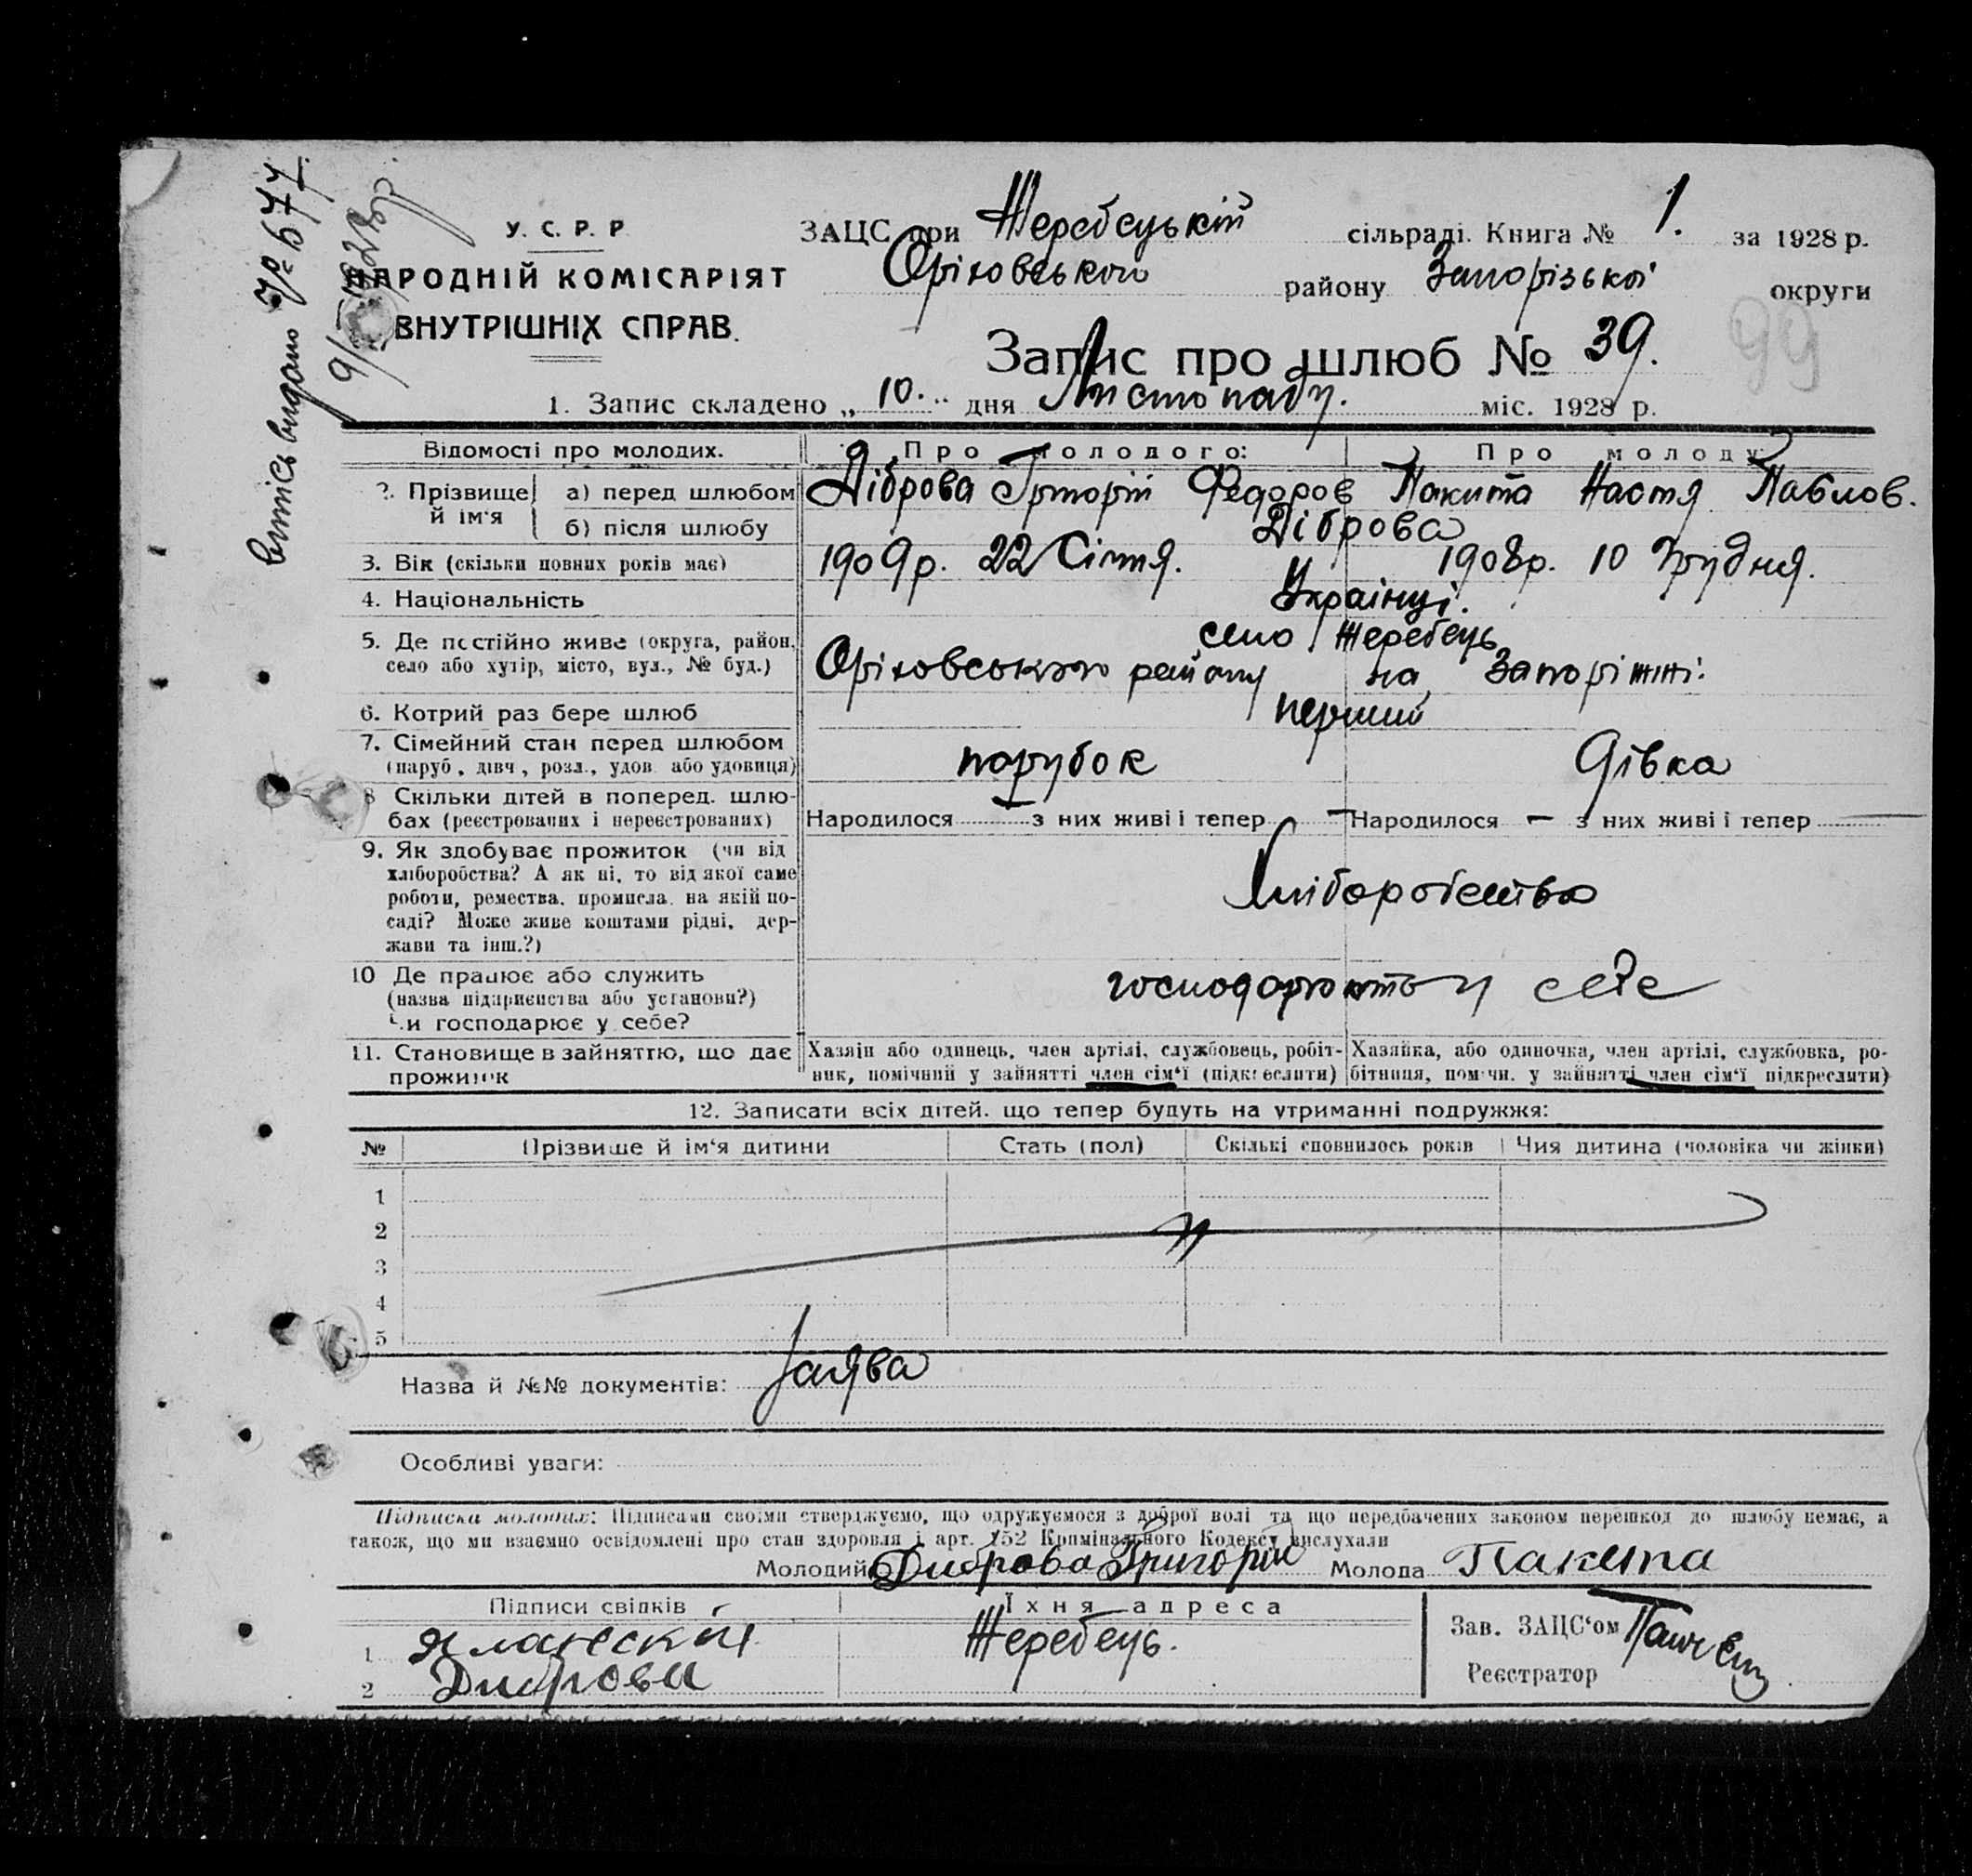 Витісь видано № 677.
У. С. Р. Р
НАРОДНІЙ КОМІСАРІЯТ
ВНУТРІШНІХ СПРАВ.
ЗАЦС при Жеребецькій сільраді. Книга № 1. за 1928 р.
Оріховського району Запорізької округи
Запис про шлюб № 39.
99
1. Запис складено „ 10. " дня Листопаду. міс. 1928 р.
Відомості про молодих. Про молодого: Про молоду:
2. Прізвище й ім'я а) перед шлюбом Діброва Григорій Федоров Пакита Настя Павлов.
б) після шлюбу Діброва
3. Вік (скільки повних років має) 1909р. 22 Січня. 1908р. 10 Грудня.
4. Національність Українці.
5. Де постійно живе (округа, район, село Жеребець
село або хутір, місто, вул., № буд.) Оріховського району на Запоріжжі.
6. Котрий раз бере шлюб перший
7. Сімейний стан перед шлюбом
(паруб., дівч., розл., удов. або удовиця) парубок дівка
8 Скільки дітей в поперед. шлю-
бах (реєстрованих і нереєстрованих) Народилося — з них живі і тепер — Народилося — з них живі і тепер —
9. Як здобуває прожиток (чи від
хліборобства? А як ні, то від якої саме
роботи, ремества, промисла, на якій по-
саді? Може живе коштами рідні, дер-
жави та інш.?) Хліборобство
10 Де працює або служить
(назва підприємства або установи?)
Чи господарює у себе? господарюють у себе
11. Становище в зайняттю, що дає
прожиток
Хазяїн або одинець, член артілі, службовець, робіт-
ник, помічний у зайнятті член сім'ї (підкреслити)
Хазяйка, або одиночка, член артілі, службовка, ро-
бітниця, помічн. у зайнятті член сім'ї підкреслити)
12. Записати всіх дітей, що тепер будуть на утриманні подружжя:
№ Прізвище й ім'я дитини Стать (пол) Скількі сповнилось років Чия дитина (чоловіка чи жінки)
1
2
3
4
5
Назва й №№ документів: Заява
Особливі уваги:
Підписка молодих: Підписами своїми стверджуємо, що одружуємося з доброї волі та що передбачених законом перешкод до шлюбу немає, а
також, що ми взаємно освідомлені про стан здоровля і арт. 152 Кримінального Кодексу вислухали
Молодий Диброва Григорий Молода Пакита
Підписи свідків Їхня адреса
1 Яланский Жеребець.
2 Диброва
Зав. ЗАЦС'ом
Реєстратор